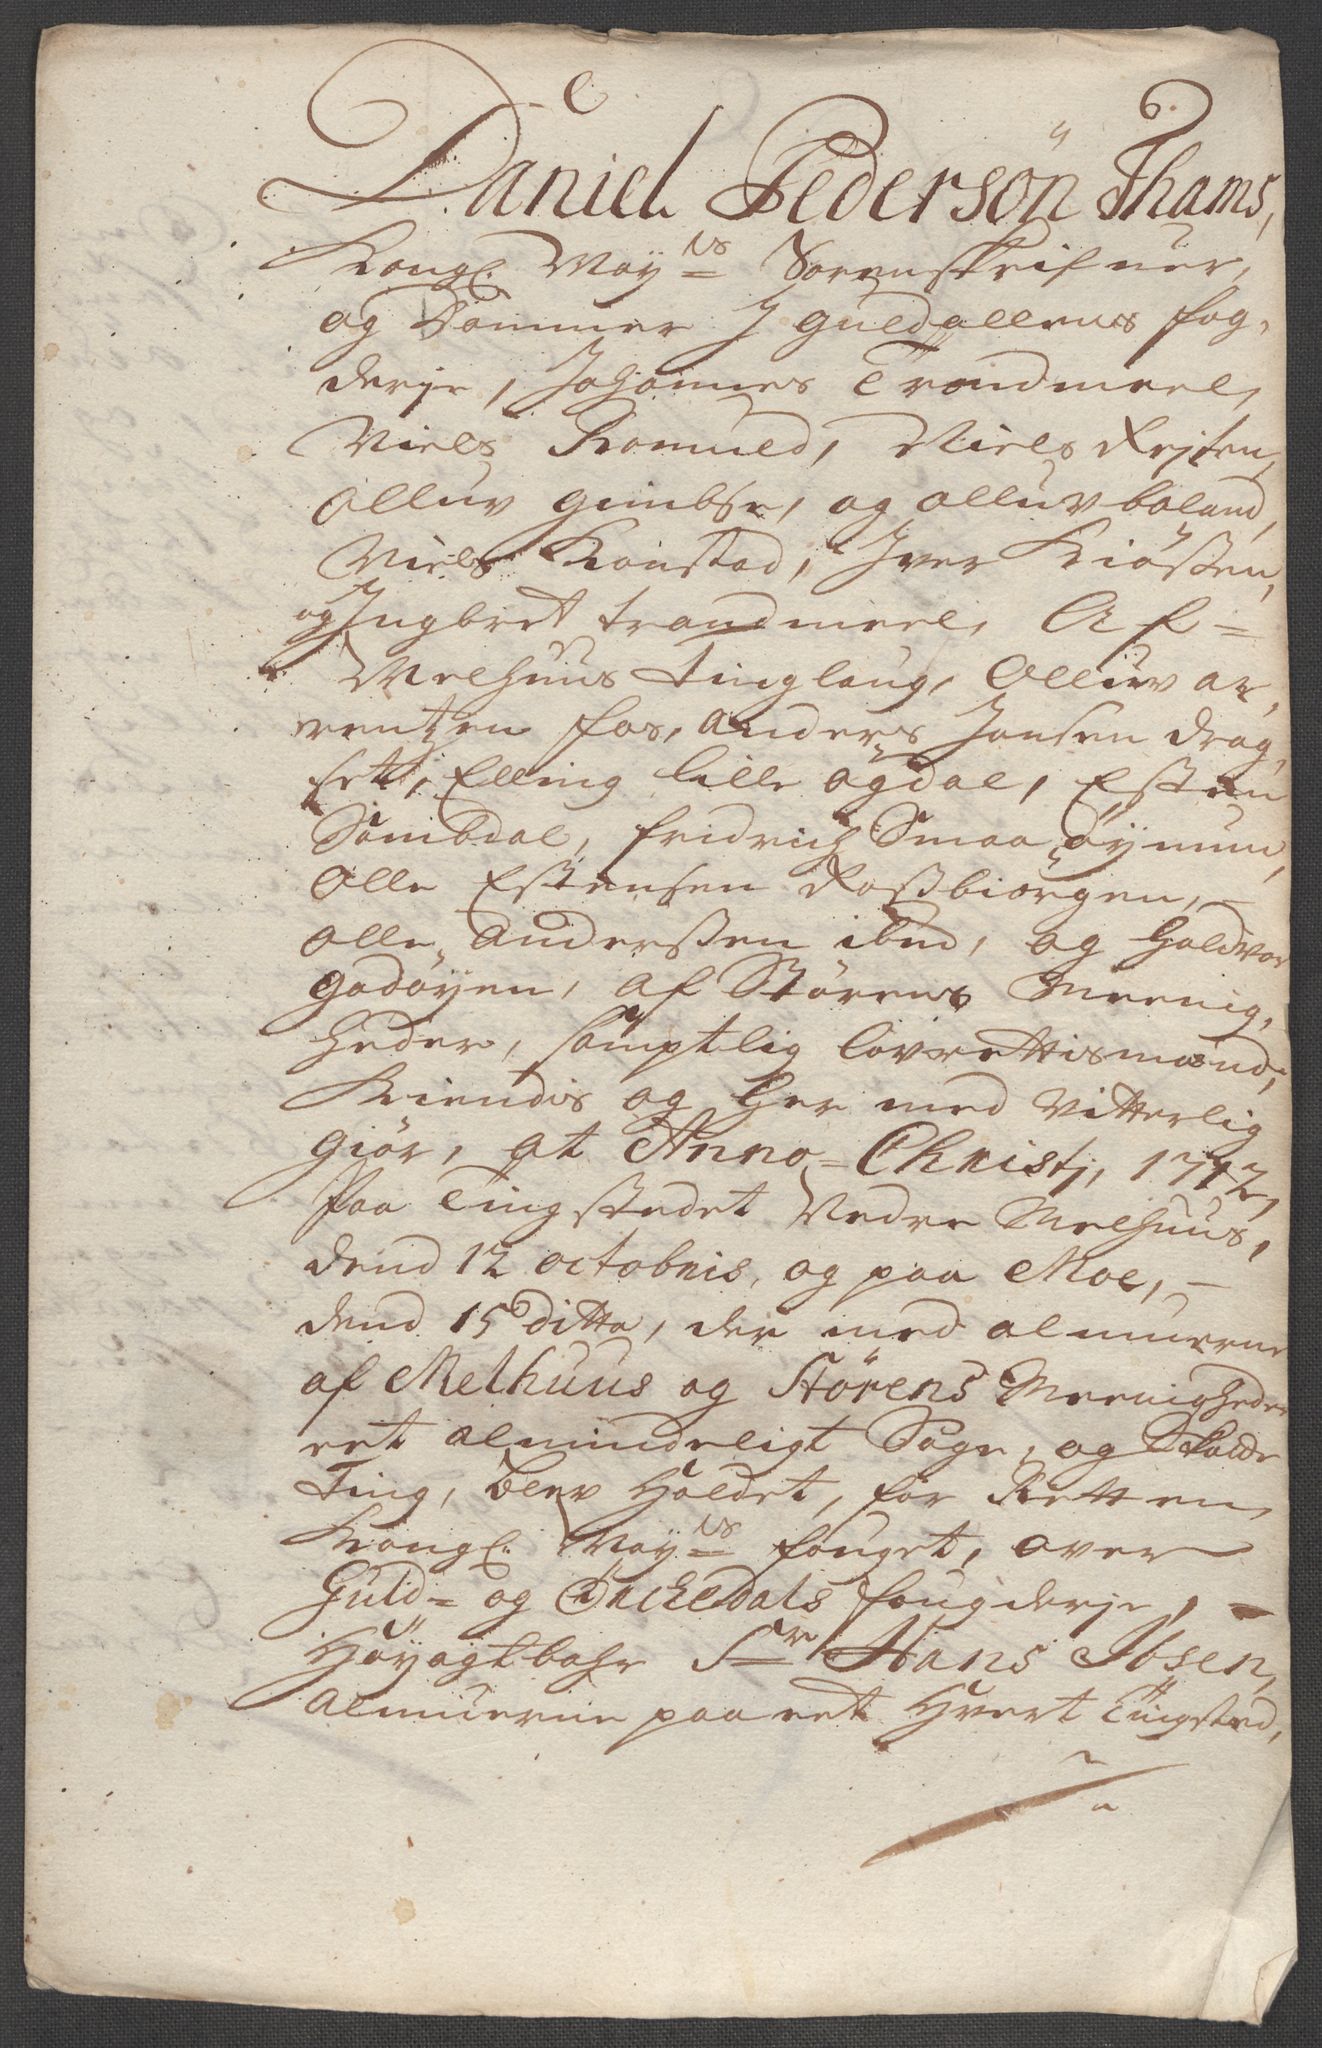 Daniel Pedersön Thams,
Kongl. Mayts Sorenskrifuer,
og Dommer J guldallens fog-
derje, Johannes Trondmeel,
Niels Romuld, Niels Rejten,
olluv gimbse, og olluv boland,
Niels Konstad, Jver Kiößen,
og Jngbret trandmeel, Af =
Melhuus Tinglaug, olluv ar-
rentzen fos, anders Jonsen drag-
sett, Elling lille ögdal, Esten
Sambdal, fridrich Smaa öymun,
olle Estensen Roßbiorgen, –
olle anderßen ibid, og Haldvor
godöyen, af Störens Meenig-
heder, samptlig lovrettismænd,
Kiendis og her med Vitterlig
giör, at Anno = Christj, 1712,
Paa Tingstedet Nedre Melhuus,
dend 12 octobris, og paa Moe, –
dend 15 ditto, der med almuerne
af Melhuus og Störens Meenigheder
eet almindeligt Sage, og Skatte
Ting, blev Holdet, for Retten,
Kongl. Mayts fouget, over
Guld = og Örchedals fougderje, –
Höyagtbahr Sr Hans Jbsen,
almuerne paa eet Hvert Tingsted,